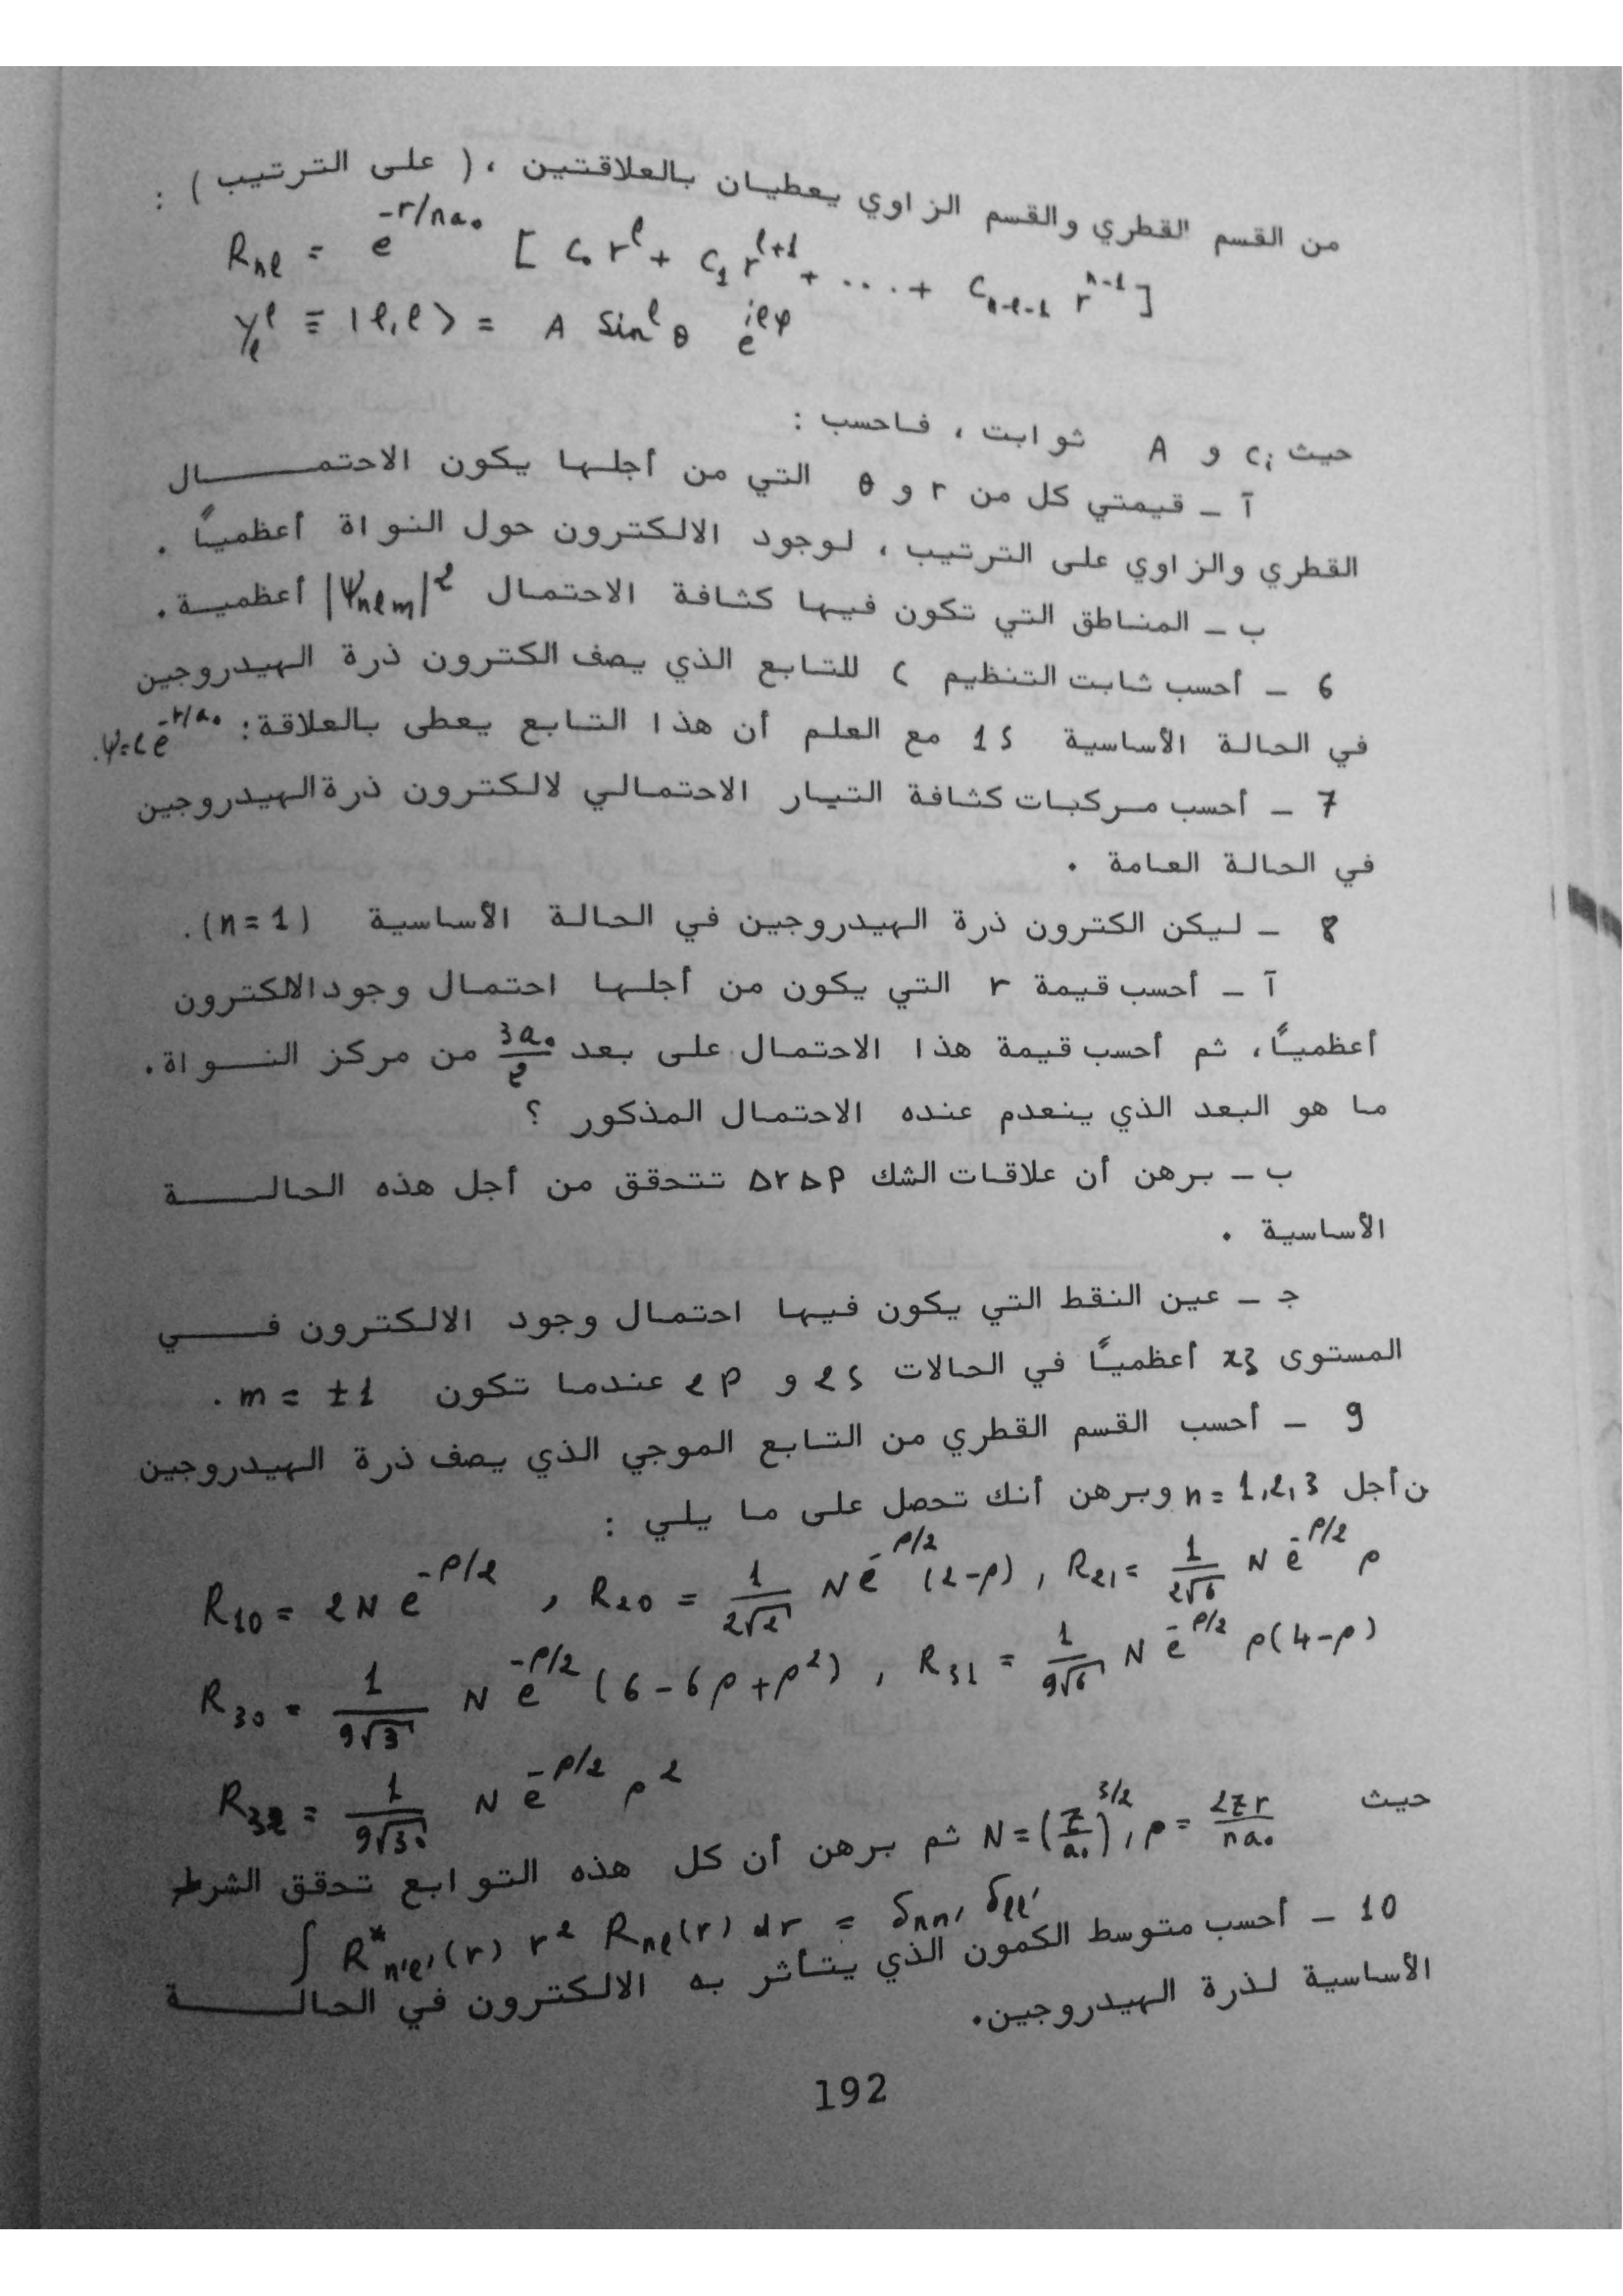 من القسم القطري والقسم الزاوي يعطيان بالعلاقتين ، ( على الترتيب ) :
Rnl = e^{-r/na₀} [ c₀ r^l + c₁ r^{l+1} + .... + c_{n-l-1} r^{n-1} ]
Y_l^l ≡ |l,l> = A Sin^l θ e^{ilφ}
حيث cᵢ و A ثوابت ، فاحسب :
آ ـ قيمتي كل من r و θ التي من أجلها يكون الاحتمـــــال
القطري والزاوي على الترتيب ، لوجود الالكترون حول النواة أعظمياً .
ب ـ المناطق التي تكون فيها كثافة الاحتمال |Ψnlm|² أعظمية .
6 ـ أحسب ثابت التنظيم C للتابع الذي يصف الكترون ذرة الهيدروجين
في الحالة الأساسية 1S مع العلم أن هذا التابع يعطى بالعلاقة : Ψ=Ce^{-r/a₀}.
7 ـ أحسب مركبات كثافة التيار الاحتمالي لالكترون ذرة الهيدروجين
في الحالة العامة .
8 ـ ليكن الكترون ذرة الهيدروجين في الحالة الأساسية (n=1).
آ ـ أحسب قيمة r التي يكون من أجلها احتمال وجود الالكترون
أعظمياً ، ثم أحسب قيمة هذا الاحتمال على بعد 3a₀/2 من مركز النــواة .
ما هو البعد الذي ينعدم عنده الاحتمال المذكور ؟
ب ـ برهن أن علاقات الشك ΔrΔP تتحقق من أجل هذه الحالــــــة
الأساسية .
جـ ـ عين النقط التي يكون فيها احتمال وجود الالكترون فــــي
المستوى xz أعظمياً في الحالات 2S و 2P عندما تكون m = ±1 .
9 ـ أحسب القسم القطري من التابع الموجي الذي يصف ذرة الهيدروجين
ن أجل n=1,2,3 وبرهن أنك تحصل على ما يلي :
R₁₀ = 2N e^{-ρ/2} , R₂₀ = 1/(2√2) N e^{-ρ/2} (2-ρ) , R₂₁ = 1/(2√6) N e^{-ρ/2} ρ
R₃₀ = 1/(9√3) N e^{-ρ/2} (6-6ρ+ρ²) , R₃₁ = 1/(9√6) N e^{-ρ/2} ρ(4-ρ)
R₃₂ = 1/(9√30) N e^{-ρ/2} ρ²
حيث N=(Z/a₀)^{3/2} , ρ = 2Zr/na₀ ثم برهن أن كل هذه التوابع تحقق الشرط
∫ R*n'l'(r) r² Rnl(r) dr = δnn' δll'
10 ـ أحسب متوسط الكمون الذي يتأثر به الالكترون في الحالــــــة
الأساسية لذرة الهيدروجين .
192